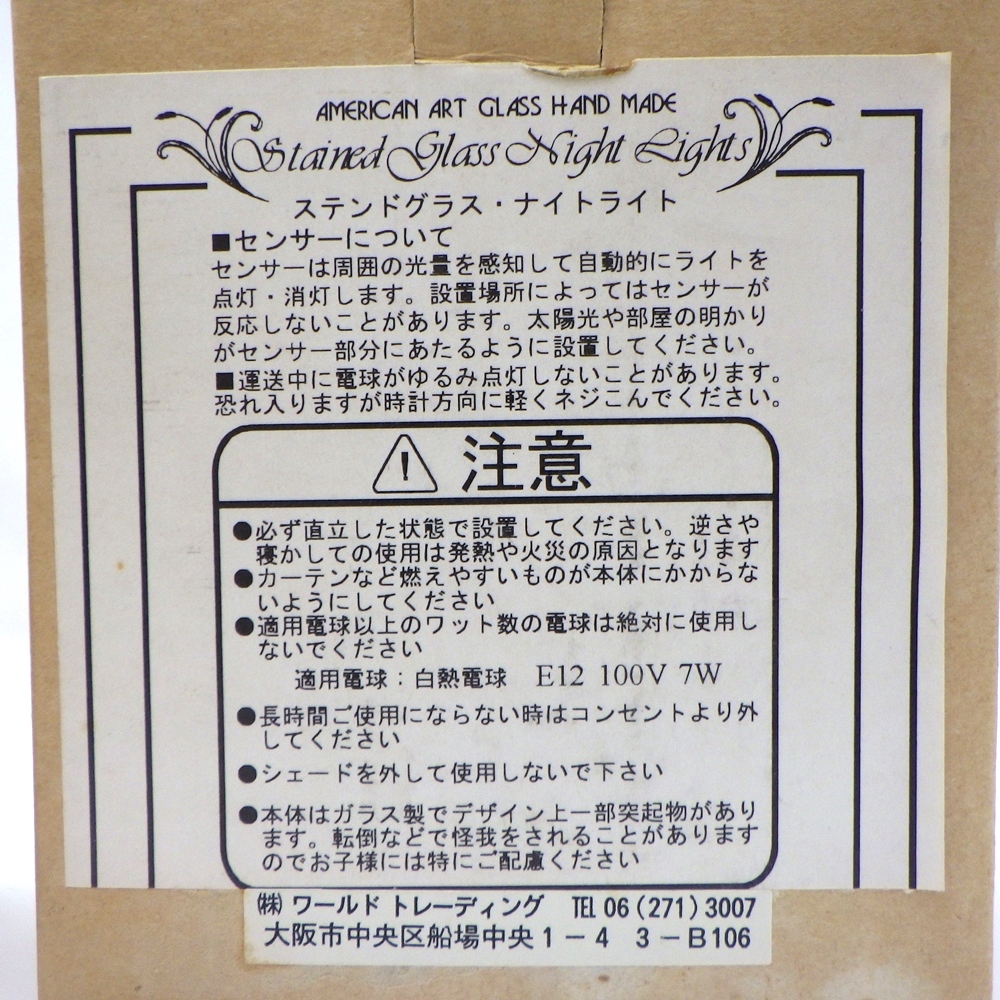 AMERICAN ART GLASS HAND MADE
Stained Glass Night Lights
ステンドグラス・ナイトライト
■センサーについて
センサーは周囲の光量を感知して自動的にライトを
点灯・消灯します。設置場所によってはセンサーが
反応しないことがあります。太陽光や部屋の明かり
がセンサー部分にあたるように設置してください。
■運送中に電球がゆるみ点灯しないことがあります。
恐れ入りますが時計方向に軽くネジこんでください。
注意
●必ず直立した状態で設置してください。逆さや
寝かしての使用は発熱や火災の原因となります
●カーテンなど燃えやすいものが本体にかからな
いようにしてください
●適用電球以上のワット数の電球は絶対に使用し
ないでください
適用電球：白熱電球 E12 100V 7W
●長時間ご使用にならない時はコンセントより外
してください
●シェードを外して使用しないで下さい
●本体はガラス製でデザイン上一部突起物があり
ます。転倒などで怪我をされることがあります
のでお子様には特にご配慮ください
㈱ワールドトレーディング TEL 06(271)3007
大阪市中央区船場中央1－4 3－B106